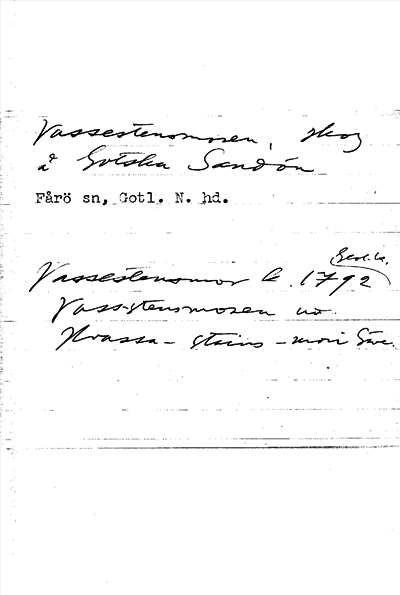 Vassestensmosen, skog
å Gotska Sandön
Fårö sn, Gotl. N. hd.
Vassestensmor k. 1792
Vass-stensmosen
Hvassa-stains-mori Säve